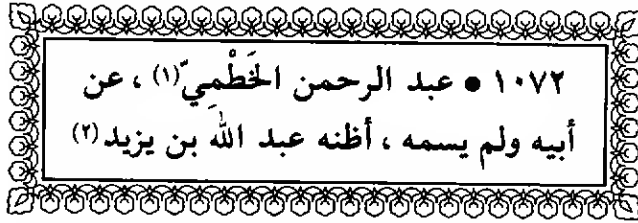 ١٠٧٢ ● عبد الرحمن الخَطْمِيّ (١) ، عن
أبيه ولم يسمه ، أظنه عبد الله بن يزيد (٢)